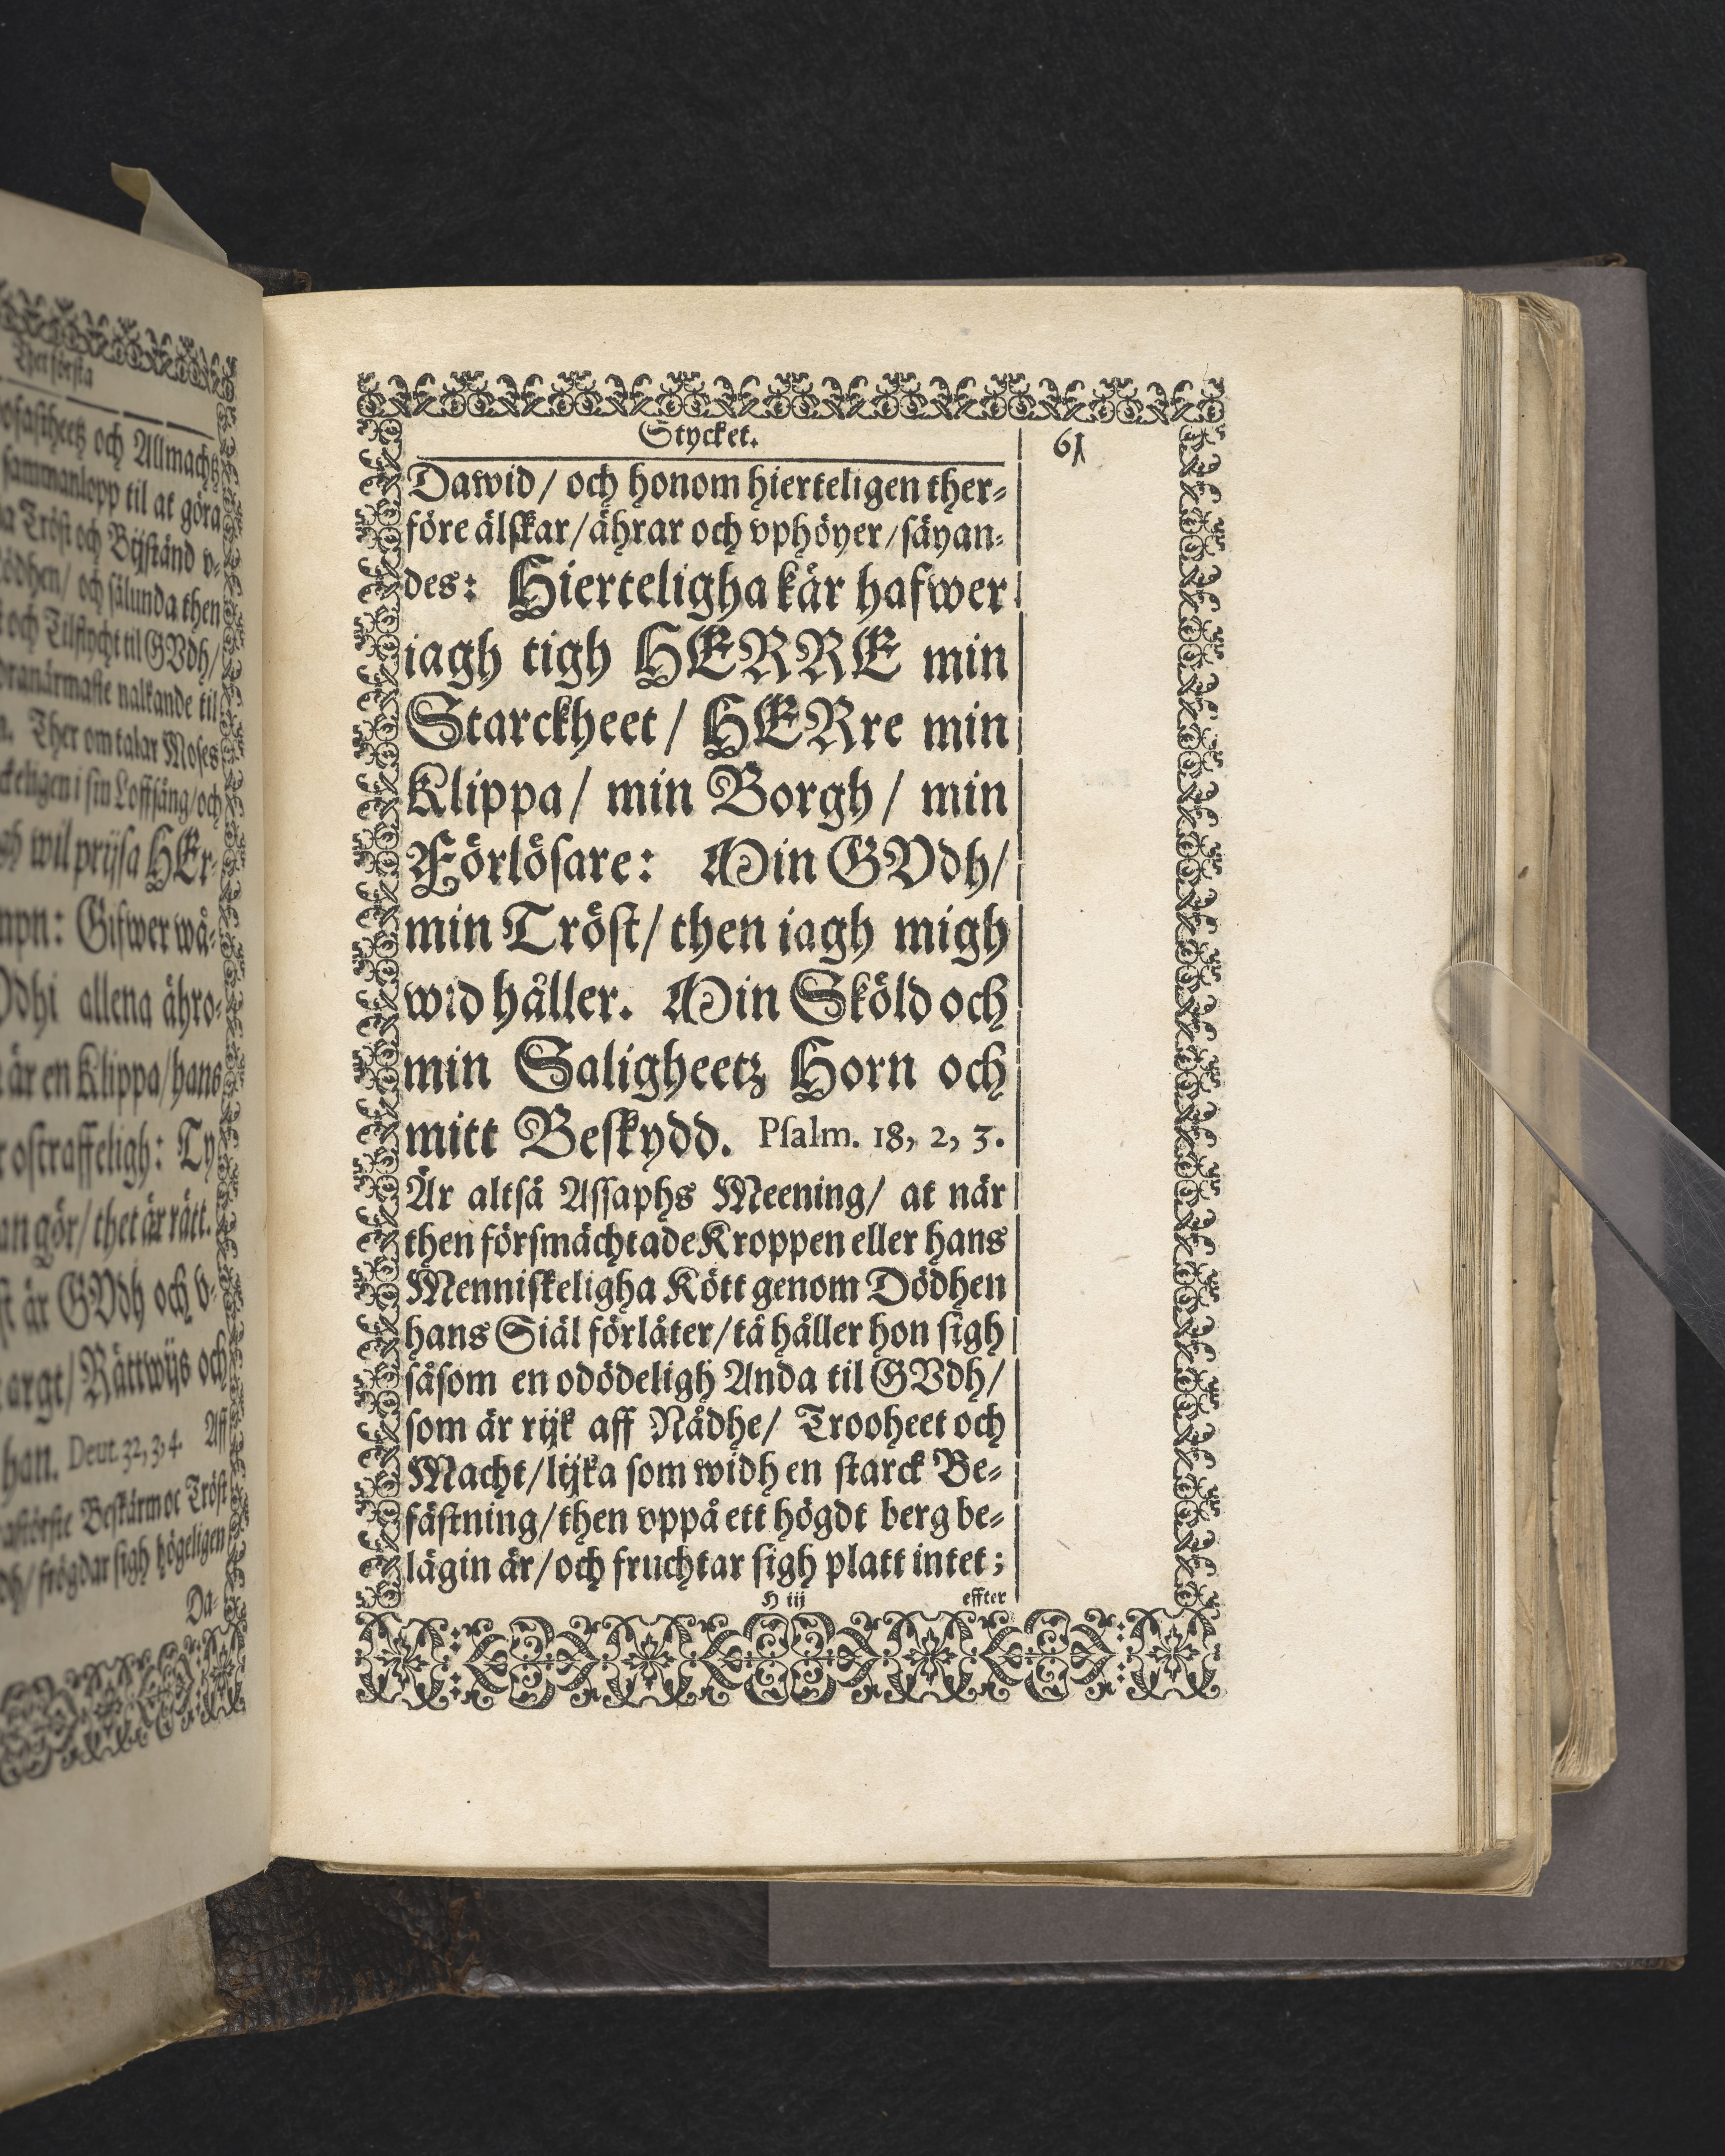 Ther första
och Allmachtz
sammanlopp til at göra
Tröst och Bijständ v-
och sålunda then
och Tilflycht til GVdh/
nalkande til
Ther om talar Moses
i sin Loffsång/och
wil prijsa HEr-
Gifwer wå-
allena ähro-
är en Klippa/hans
ostraffeligh: Ty
gör/thet är rätt.
är GVdh och v-
argt/Rättwijs och
han. Deut. 32, 3, 4. Aff
Beskärm oc Tröst
frögdar sigh högeligen
Da-
Stycket. 61
Dawid/ och honom hierteligen ther-
före älskar/ährar och vphöyer/säyan-
des: Hierteligha kär hafwer
iagh tigh HERRE min
Starckheet/ HERre min
Klippa/ min Borgh/ min
Förlösare: Min GVdh/
min Tröst/then iagh migh
wid håller. Min Sköld och
min Saligheetz Horn och
mitt Beskydd. Psalm. 18, 2, 3.
Är altså Assaphs Meening/ at när
then försmächtade Kroppen eller hans
Menniskeligha Kött genom Dödhen
hans Siäl förlåter/tå håller hon sigh
såsom en odödeligh Anda til GVdh/
som är rijk aff Nådhe/ Trooheet och
Macht/lijka som widh en starck Be-
fästning/then vppå ett högdt berg be-
lägin är/och fruchtar sigh platt intet;
H iij effter